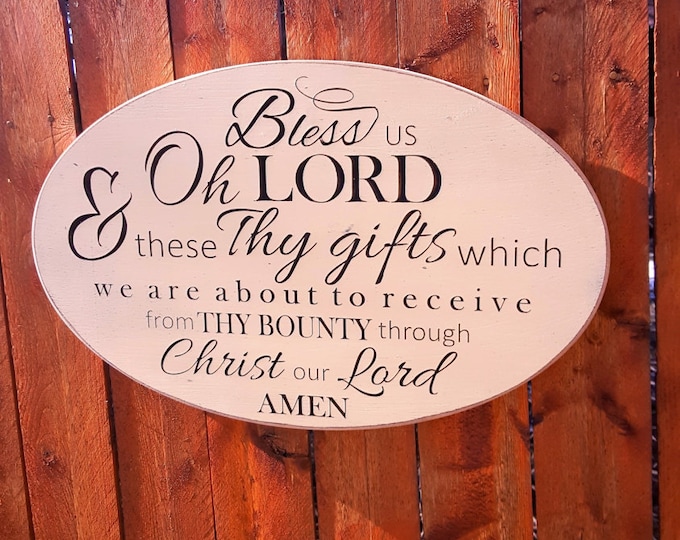 Bless us
Oh LORD
& these Thy gifts which
we are about to receive
from THY BOUNTY through
Christ our Lord
AMEN